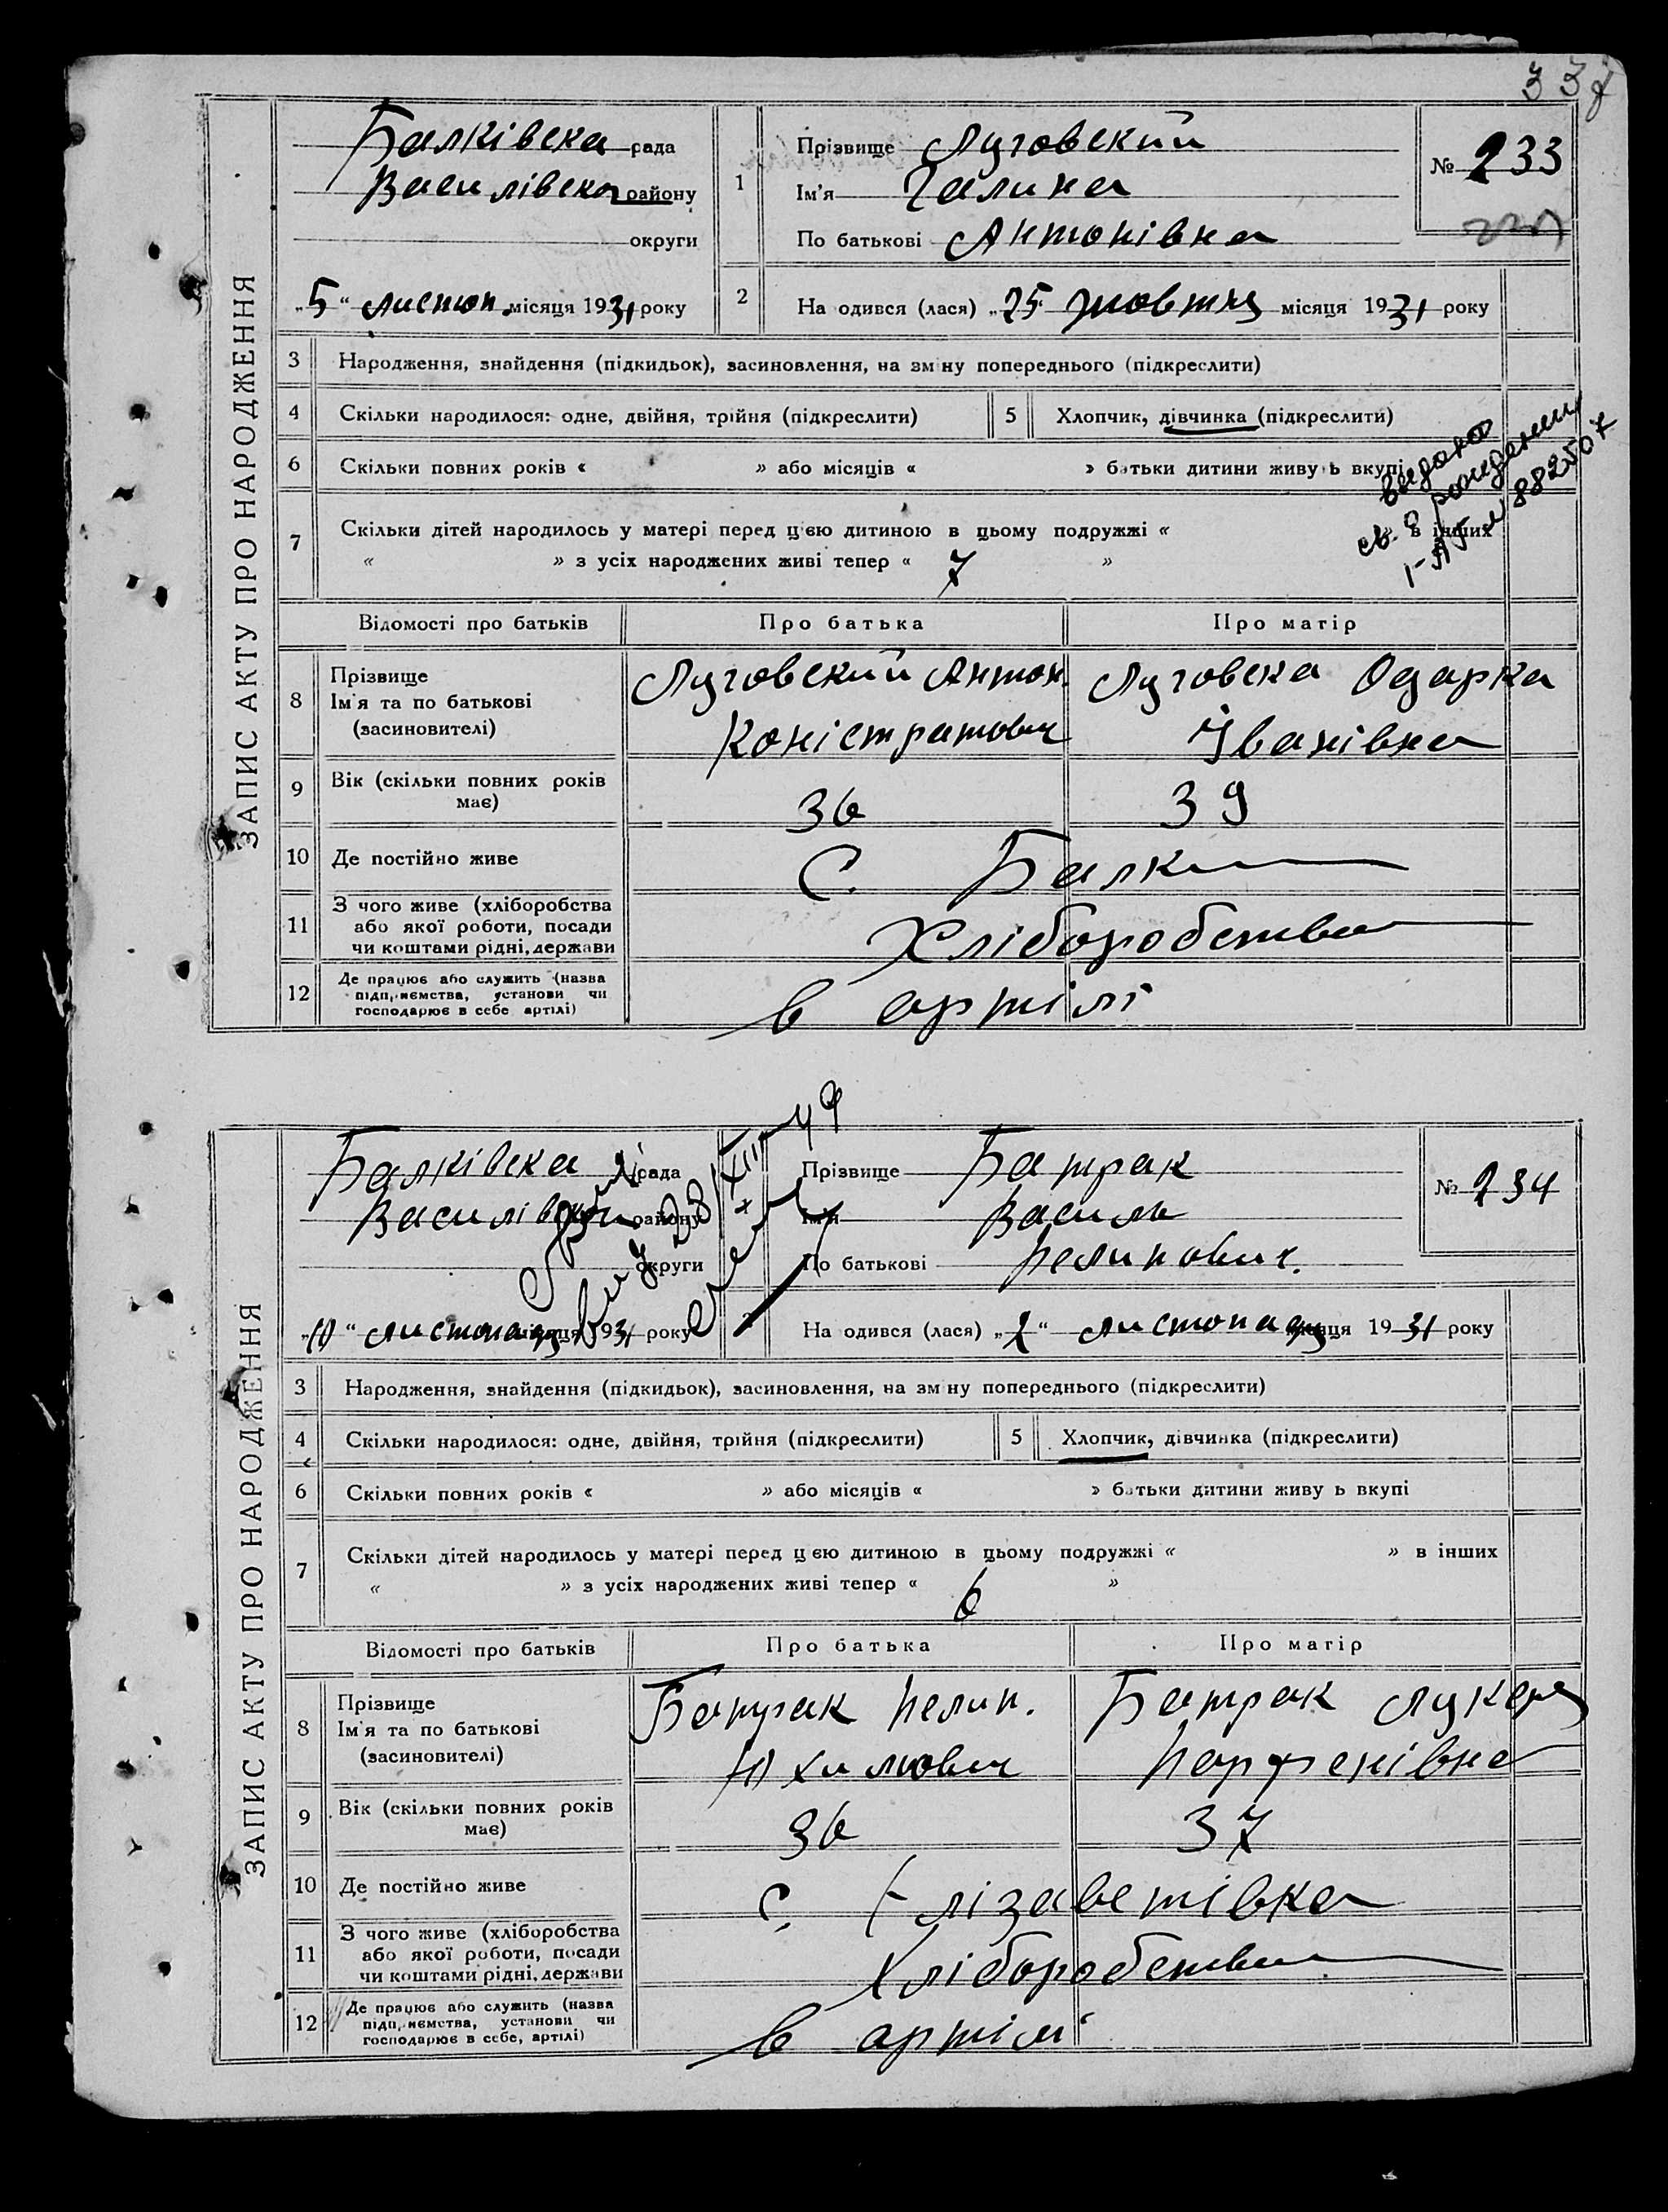 337
ЗАПИС АКТУ ПРО НАРОДЖЕННЯ
Балківска рада
Василівска району
округи
„5“ листоп. місяця 1931 року
1
Прізвище Луговский
Ім'я Галина
По батькові Антонівна
№ 233
2
На одився (лася) „25 жовтня місяця 1931 року
3 Народження, знайдення (підкидьок), засиновлення, на зм ну попереднього (підкреслити)
4 Скільки народилося: одне, двійня, трійня (підкреслити)
5 Хлопчик, дівчинка (підкреслити)
6 Скільки повних років « » або місяців « » батьки дитини живу ь вкупі
7 Скільки дітей народилось у матері перед цією дитиною в цьому подружжі « » в інших
« » з усіх народжених живі тепер « 7 »
св. о рождении
№ 882507
Відомості про батьків Про батька Про матір
8 Прізвище
Ім'я та по батькові
(засиновителі)
Луговский Антон
Коністратович
Луговска Одарка
Іванівна
9 Вік (скільки повних років має) 36 39
10 Де постійно живе С. Балки
11 З чого живе (хліборобства
або якої роботи, посади
чи коштами рідні, держави
Хліборобства
12 Де працює або служить (назва
підприємства, установи чи
господарює в себе артілі)
в артілі
ЗАПИС АКТУ ПРО НАРОДЖЕННЯ
Балківска рада
Василівск району
округи
„10“ листопаду місяця 1931 року
28/XII 49
Прізвище Батрак
Ім'я Василь
По батькові Пелипович.
№ 234
2
На одився (лася) „2“ листопаду місяця 1931 року
3 Народження, знайдення (підкидьок), засиновлення, на зм ну попереднього (підкреслити)
4 Скільки народилося: одне, двійня, трійня (підкреслити)
5 Хлопчик, дівчинка (підкреслити)
6 Скільки повних років « » або місяців « » батьки дитини живу ь вкупі
7 Скільки дітей народилось у матері перед цією дитиною в цьому подружжі « » в інших
« » з усіх народжених живі тепер « 6 »
Відомості про батьків Про батька Про матір
8 Прізвище
Ім'я та по батькові
(засиновителі)
Батрак Пелип.
Юхимович
Батрак Лукеря
Парфенівна
9 Вік (скільки повних років має) 36 37
10 Де постійно живе С. Єлізаветівка
11 З чого живе (хліборобства
або якої роботи, посади
чи коштами рідні, держави
Хліборобства
12 Де працює або служить (назва
підприємства, установи чи
господарює в себе, артілі)
в артілі